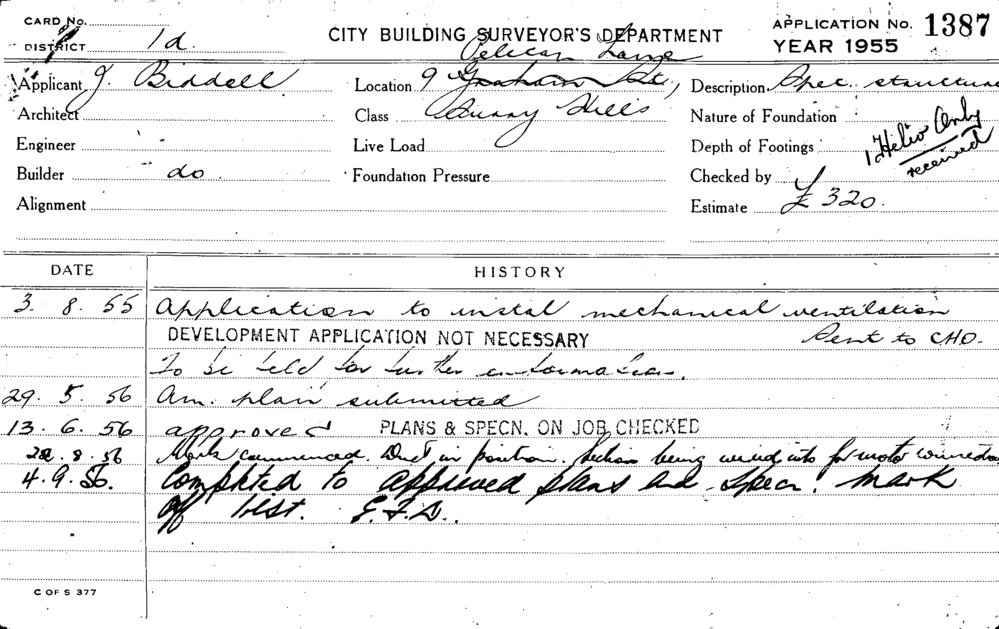 CARD No.
DISTRICT 1d.
CITY BUILDING SURVEYOR'S DEPARTMENT
APPLICATION No. 1387
YEAR 1955
Pelican Lane
Applicant J. Biddell
Location 9 Graham St,
Description Spec. structure
Architect
Class Surry Hills
Nature of Foundation
Engineer "
Live Load
Depth of Footings
1 Helio Only
received
Builder do
Foundation Pressure
Checked by
Alignment
Estimate £320.
DATE HISTORY
3. 8. 55 Application to instal mechanical ventilation
DEVELOPMENT APPLICATION NOT NECESSARY Sent to CHO.
To be held for further information.
29. 5. 56 Am. plan submitted
13. 6. 56 approved PLANS & SPECN. ON JOB CHECKED
8. 56 Work commenced. Duct in position. being for motor
4. 9. 56. Completed to approved plans and specn. mark
off list. G.F.D..
C OF S 377